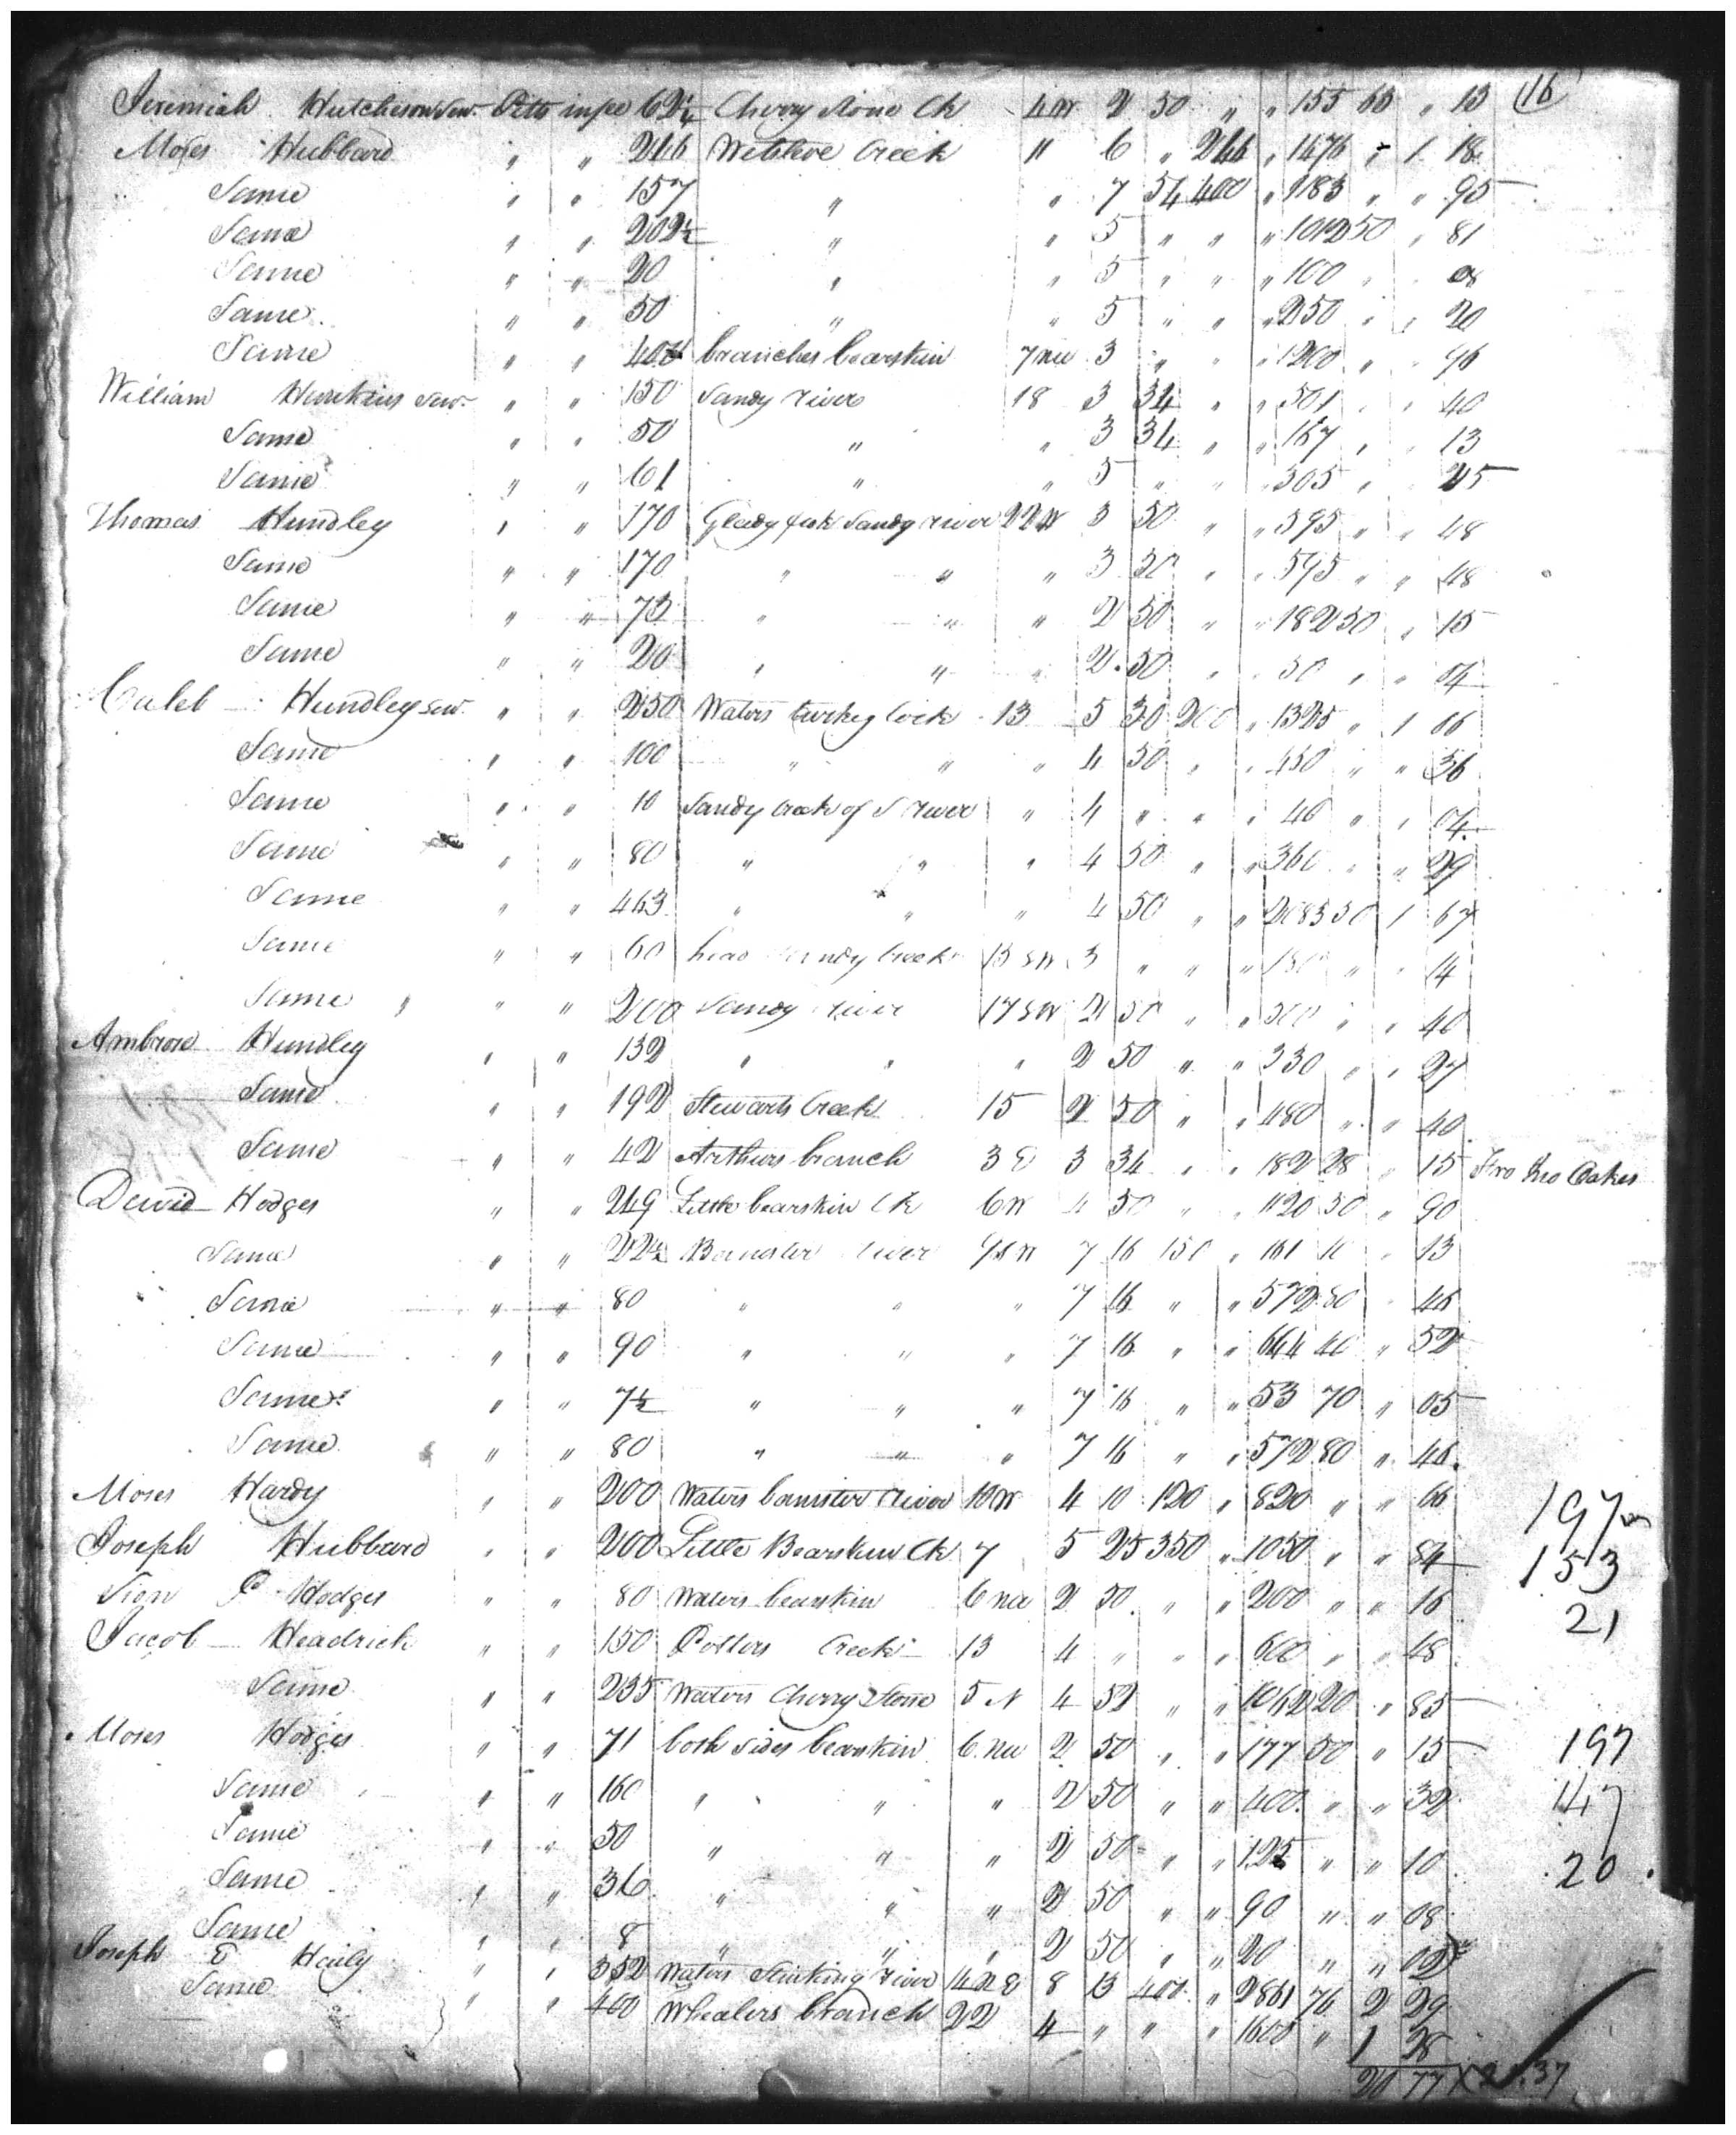 Jeremiah Hutcheson Sen. Pitts in fee 62¼ Cherry Stone Ck 4 W 2 50 " " 155 63 " 13 (16)
Moses Hubbard " " 246 Wetsleve Creek 11 6 " 246 " 1476 " 1 18
Same " " 157 " " 7 54 400 " 1183 " " 95
Same " " 202½ " " 5 " " " 1012 50 " 81
Same " " 20 " " 5 " " " 100 " " 08
Same " " 50 " " 5 " " " 250 " " 20
Same " " 400 branches bearskin 7 nw 3 " " " 1200 " " 96
William Sen. " " 150 Sandy river 18 3 34 " " 501 " " 40
Same " " 50 " " 3 34 " " 167 " " 13
Same " " 61 " " 5 " " " 305 " " 25
Thomas Hundley " " 170 Glady fork Sandy river 22 W 3 50 " " 595 " " 48
Same " " 170 " " " 3 50 " " 595 " " 48
Same " " 73 " " " 2 50 " " 182 50 " 15
Same " " 20 " " " 2 50 " " 50 " " 04
Caleb Hundley Sen. " " 250 Waters turkey Cock 13 5 30 200 " 1325 " 1 06
Same " " 100 " " " 4 50 " " 450 " " 36
Same " " 10 Sandy Creek of S river " 4 " " " 40 " " 04
Same " " 80 " " " 4 50 " " 360 " " 29
Same " " 463 " " " 4 50 " " 2083 50 1 67
Same " " 60 head Sandy Creek 13 SW 3 " " " 180 " " 14
Same " " " 200 Sandy river 17 SW 2 50 " " 500 " " 40
Ambrose Hundley " " 132 " " " 2 50 " " 330 " " 27
Same " " 192 Stewarts Creek 15 2 50 " " 480 " " 40
Same " " 42 Arthurs branch 3 E 3 34 " " 182 28 " 15 Fro Jno Oakes
David Hodges " " 249 Little bearskin Ck 6 W 4 50 " " 1120 50 " 90
Same " " 22½ Banister river 9 SW 7 16 150 " 161 10 " 13
Same " " 80 " " " 7 16 " " 572 80 " 46
Same " " 90 " " " 7 16 " " 644 40 " 52
Same " " 7½ " " " 7 16 " " 53 70 " 05
Same " " 80 " " " 7 16 " " 572 80 " 46
Moses Hardy " " 200 Waters banister river 10 W 4 10 120 " 820 " " 66
197
Joseph Hubbard " " 200 Little Bearskin Ck 7 5 25 350 " 1050 " " 84
153
Sion P Hodges " " 80 Waters bearskin 6 nw 2 50 " " 200 " " 16
21
Jacob Headrick " " 150 Potters Creek 13 4 " " " 600 " " 48
Same " " 235 Waters Cherry Stone 5 N 4 52 " " 1062 20 " 85
Moses Hodges " " 71 both sides bearskin 6 nw 2 50 " " 177 50 " 15
197
Same " " 160 " " " 2 50 " " 400 " " 32
147
Same " " 50 " " " 2 50 " " 125 " " 10
20
Same " " 36 " " " 2 50 " " 90 " " 08
Same " " 8 " " " 2 50 " " 20 " " 02
Joseph T Haily " " 352 Waters Stinking river 14 N E 8 13 400 " 2861 76 2 29
Same " " 400 Whealers branch 22 4 " " " 1600 " 1 28
20 77